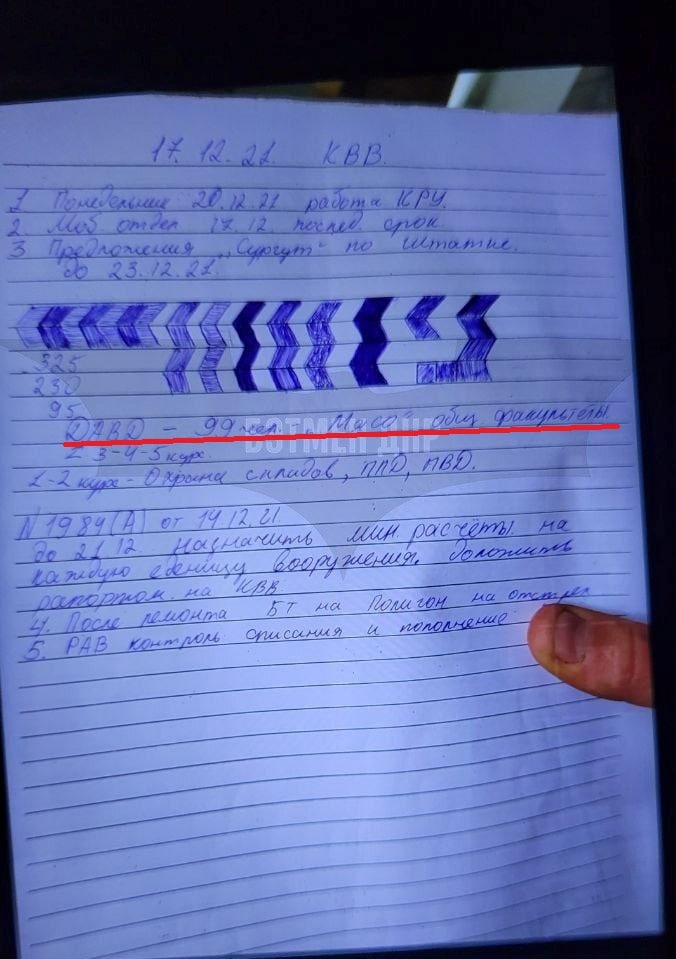 17. 12. 21. КВВ.
1 Понедельник 20.12.21 работа КРУ.
2. Моб отдел 17.12. послед. срок.
3 Предложения „Сургут" по штатке.
до 23.12.21.
325
230
95
DАВD - 99 чел. "Масо" общ факультеты
ВОТМЕН ДНР
Σ 3-4-5 курс.
1-2 курс - Охрана складов, ППД, ПВД.
N 1984(А) от 14.12.21
до 21.12. назначить мин. расчёты на
каждую единицу вооружения. Доложить
рапортом на КВВ
4. После ремонта БТ на Полигон на отстрел
5. РАВ контроль списания и пополнение